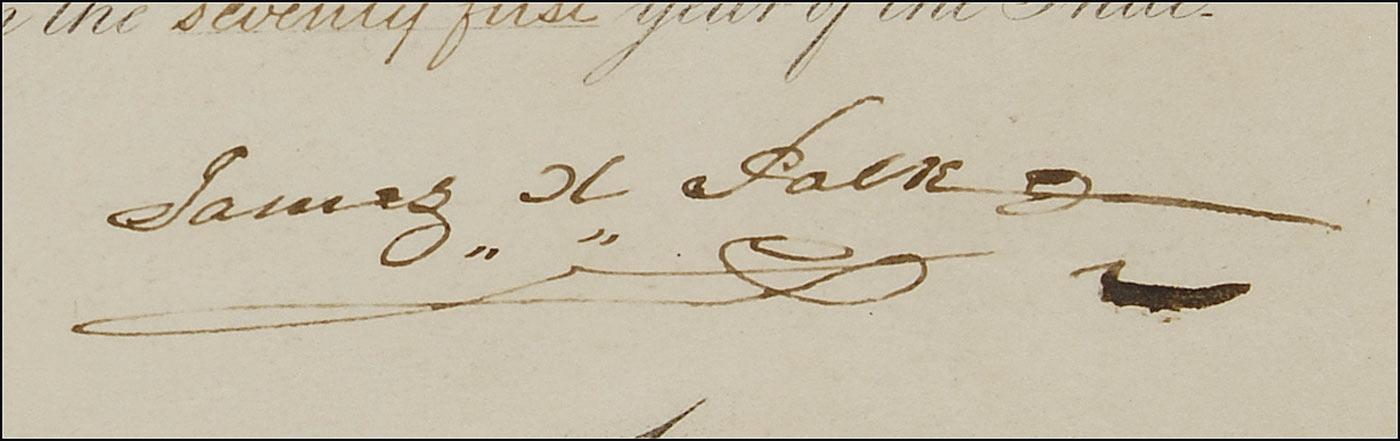 the seventy first year of the Inde-
James K Polk